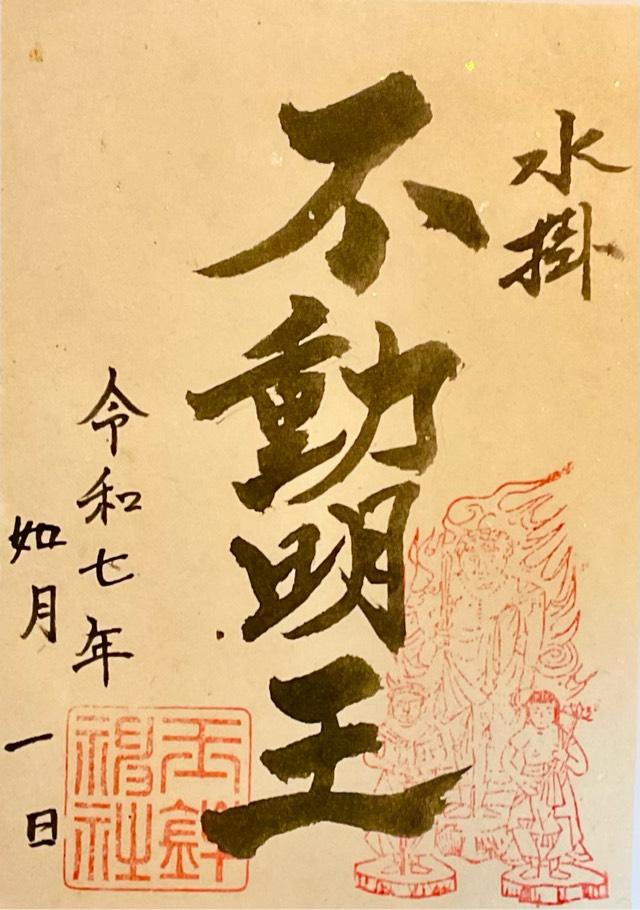 水掛
不動明王
令和七年
如月一日
玉鉾
神社